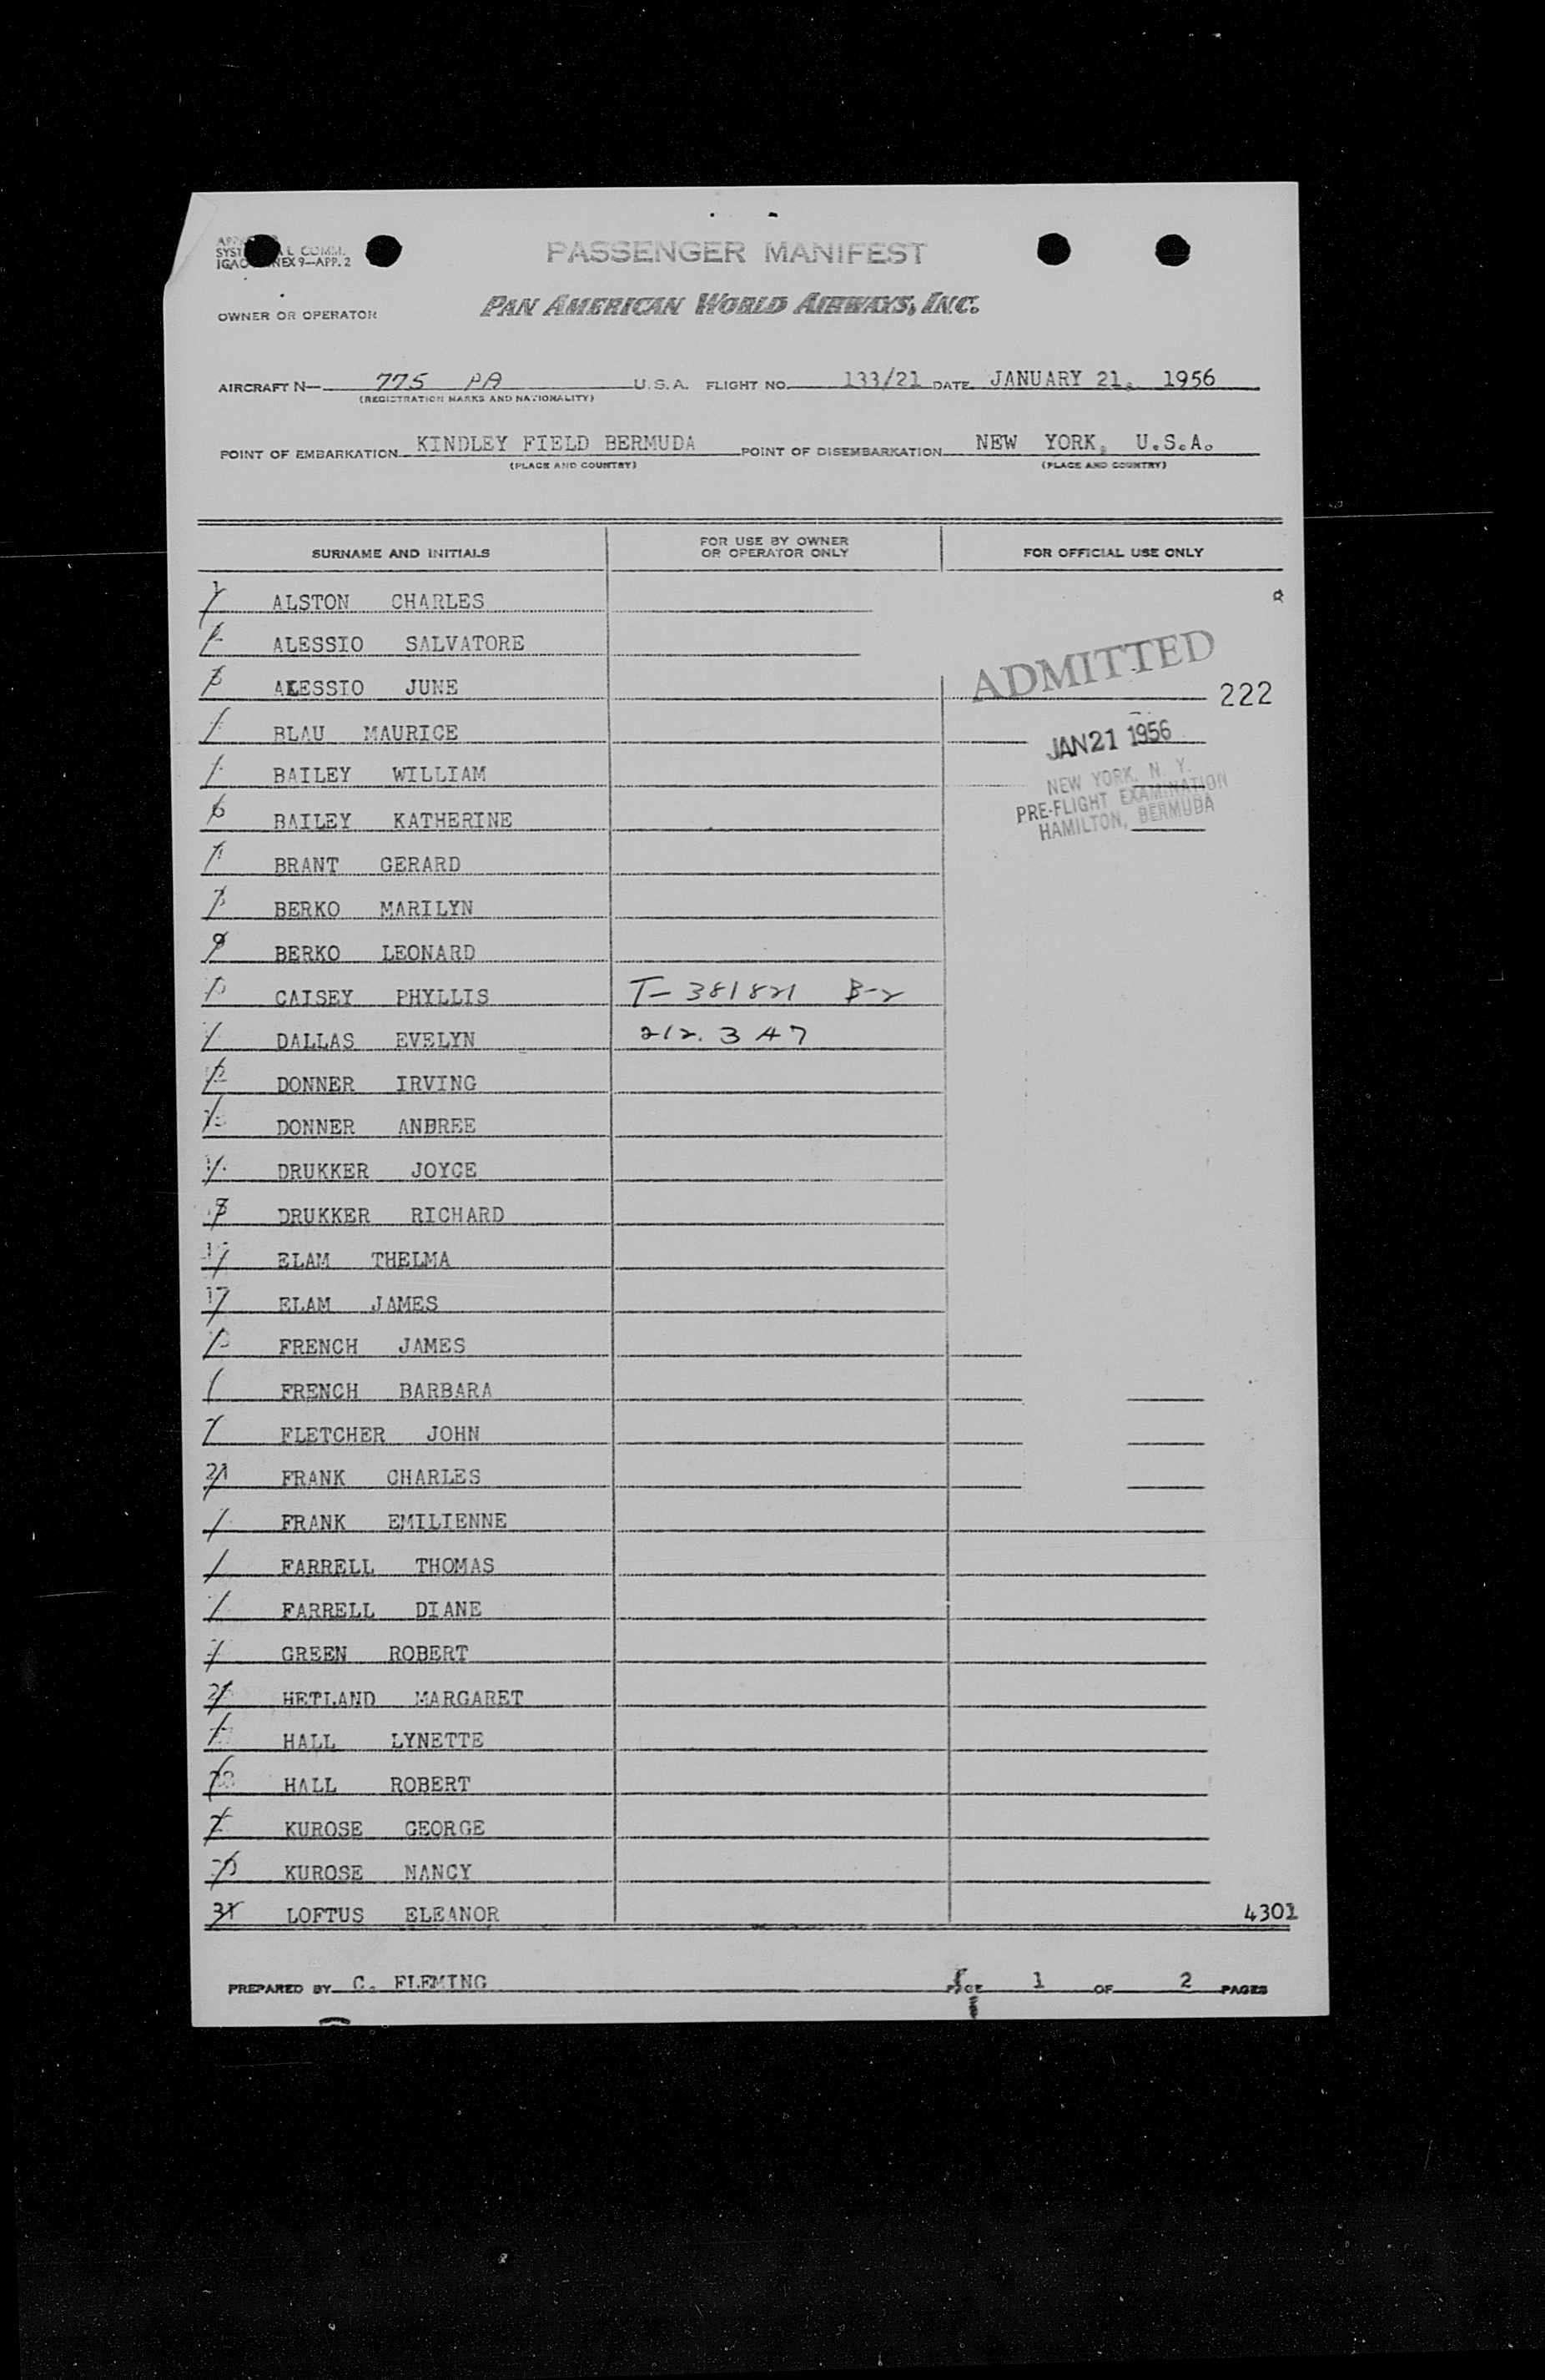 SYST L COMM.
NEX 9—APP. 2
PASSENGER MANIFEST
OWNER OR OPERATOR
PAN AMERICAN WORLD AIRWAYS, INC.
AIRCRAFT N— 775 PA U.S.A. FLIGHT NO. 133/21 DATE JANUARY 21, 1956
(REGISTRATION MARKS AND NATIONALITY)
POINT OF EMBARKATION KINDLEY FIELD BERMUDA POINT OF DISEMBARKATION NEW YORK, U.S.A.
(PLACE AND COUNTRY) (PLACE AND COUNTRY)
SURNAME AND INITIALS FOR USE BY OWNER OR OPERATOR ONLY FOR OFFICIAL USE ONLY
1 ALSTON CHARLES
ALESSIO SALVATORE
3 ALESSIO JUNE
ADMITTED
222
BLAU MAURICE
JAN 21 1956
BAILEY WILLIAM
NEW YORK, N. Y.
PRE-FLIGHT EXAMINATION
HAMILTON, BERMUDA
6 BAILEY KATHERINE
BRANT GERARD
BERKO MARILYN
9 BERKO LEONARD
CAISEY PHYLLIS T-381821 B-2
DALLAS EVELYN 212.347
DONNER IRVING
DONNER ANDREE
DRUKKER JOYCE
DRUKKER RICHARD
ELAM THELMA
17 ELAM JAMES
FRENCH JAMES
FRENCH BARBARA
FLETCHER JOHN
21 FRANK CHARLES
FRANK EMILIENNE
FARRELL THOMAS
FARRELL DIANE
GREEN ROBERT
HETLAND MARGARET
HALL LYNETTE
HALL ROBERT
KUROSE GEORGE
KUROSE NANCY
31 LOFTUS ELEANOR
4301
PREPARED BY C. FLEMING PAGE 1 OF 2 PAGES